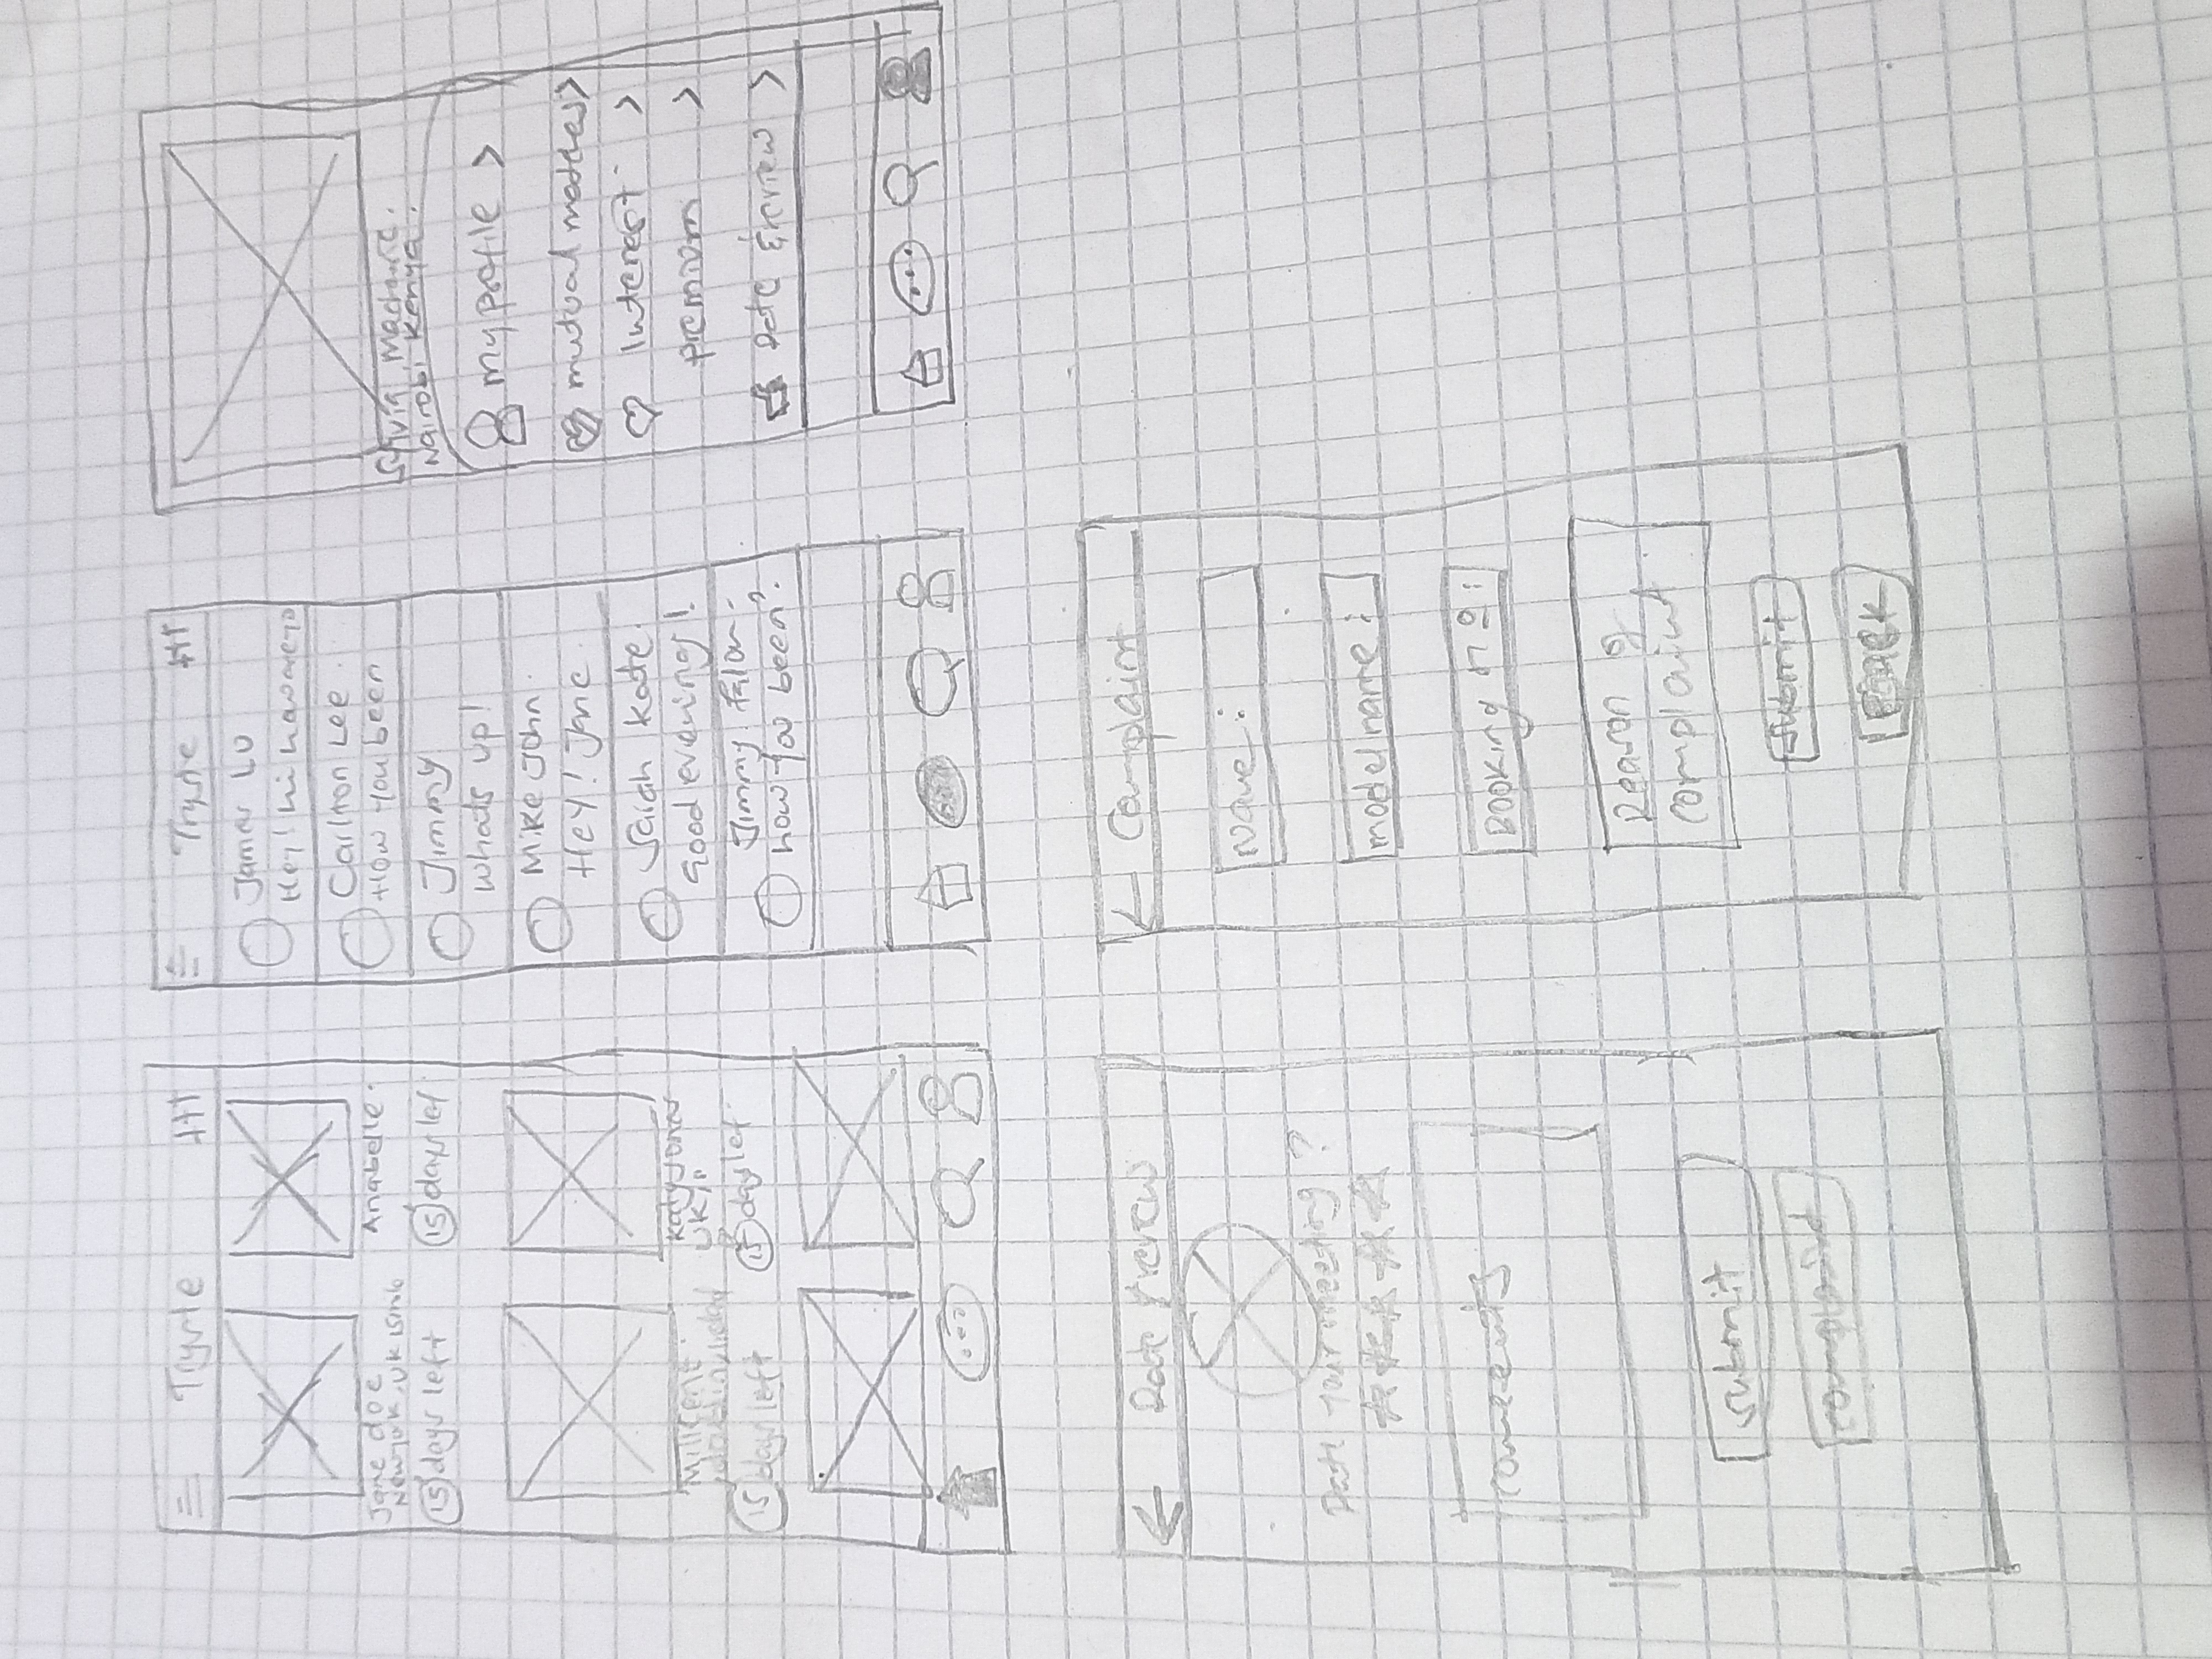 Tryste
Jane doe
Newyork, UK
15 days left
Anabelle.
15 days lef
Millicent.
15 days left
Katy Jones
UK
15 days lef.
Tryste
James LU
Hey! hi
Carlton Lee.
How you been
Jimmy
whats up!
Mike John.
Hey! Jane.
Sarah Kate.
Good evening!
Jimmy Falon.
how you been?
Sylvia
Nairobi Kenya.
my profile >
mutual matches >
Interest >
premium >
Rate & review >
Rate & review
Rate your meeting ?
comments
submit
complaint
Complaint
Name:
model name:
Booking nº:
Reason of
complaint
submit
Back